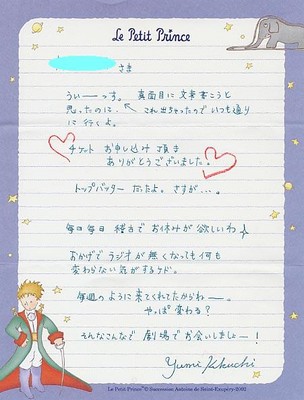 Le Petit Prince
さま
うぃーっす。 真面目に文章書こうと
思ったのに、← これ出ちゃったので いつも通り
に 行くよ。
チケット お申し込み 頂き
ありがとうございました。
トップバッター だったよ。 さすが…。
毎日毎日 稽古で お休みが 欲しいわ
おかげで ラジオが 無くなっても 何も
変わらない 気がするケド。
毎週のように 来てくれてたからねー。
やっぱ 変わる?
そんなこんなで 劇場で お会いしましょー!
Yumi Kakuchi
Le Petit Prince © Succession Antoine de Saint-Exupéry 2002